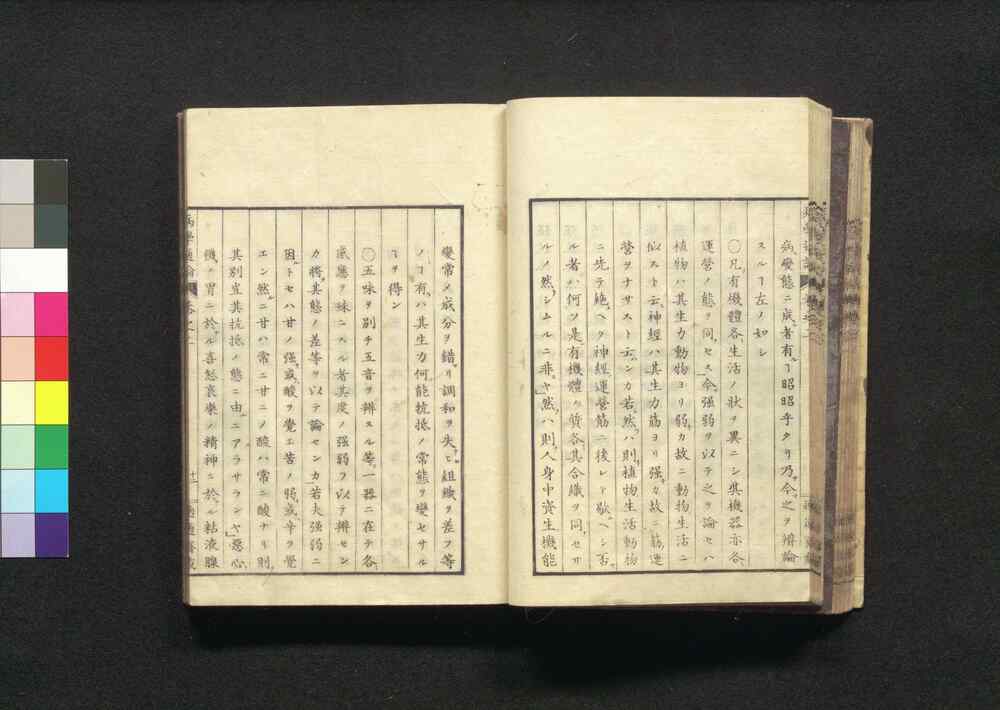 病變態ニ成者有ヿ昭昭乎タリ乃今之ヲ辨論
スルヿ左ノ如シ
〇凡有機體各生活ノ狀ヲ異ニシ其機器亦各
運營ノ態ヲ同セス今強弱ヲ以テ之ヲ論セハ
植物ハ其生力動物ヨリ弱カ故ニ動物生活ニ
似スト云神經ハ其生力筋ヨリ强カ故ニ筋運
營ヲナサスト云ンカ若然ハ則植物生活動物
ニ先テ絶ヘク神經運營筋ニ後レト歇ヘシ否
ル者ハ何ソ是有機體ハ質各其合織ヲ同セサ
ルノ然シムルニ非ヤ然ハ則人身中資生機能
變常ノ成分ヲ錯リ調和ヲ失ヒ組織ヲ差フ等
ノヿ有ハ其生力何能抗抵ノ常態ヲ變セサル
ヿヲ得ン
〇五味ヲ別チ五音ヲ辨スル等一器ニ在テ各
感應ヲ殊ニスル者其度ノ强弱ヲ以テ辨セン
カ將其態ノ差等ヲ以テ論センカ若夫强弱ニ
因トセハ甘ノ强或酸ヲ覺エ苦ノ弱或辛ヲ覺
エン然ニ甘ハ常ニ甘ニノ酸ハ常ニ酸ナリ則
其別豈其抗抵ノ態ニ由ニアラサランヤ惡心
機ノ胃ニ於ル喜怒哀樂ノ精神ニ於ル粘液腺
病學通論
卷之二